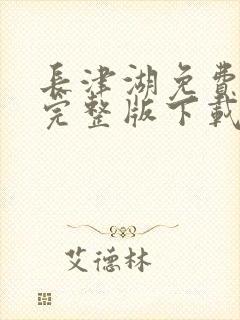 長津湖免費
完整版下載
艾德林